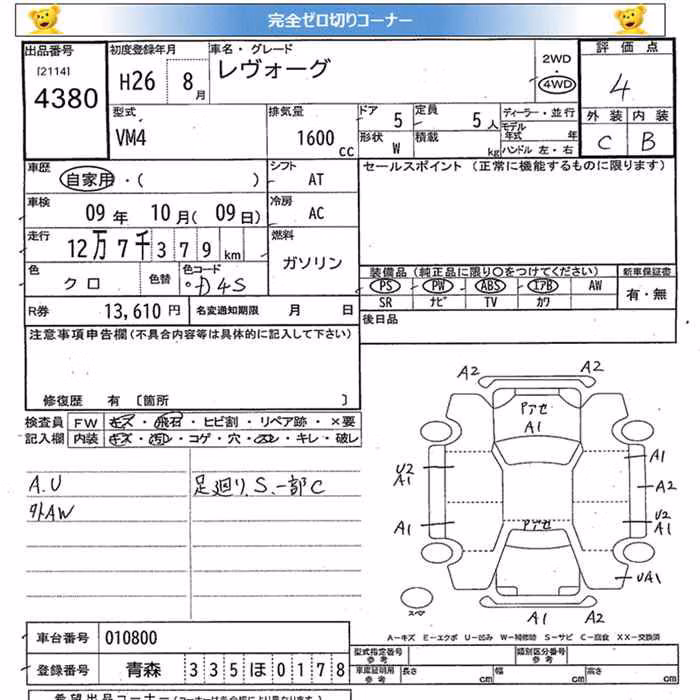 完全ゼロ切りコーナー
出品番号 初度登録年月 車名・グレード 評価点
[2114] 4380 H26 8月 レヴォーグ 2WD・4WD 4
型式 排気量 ドア 定員 ディーラー・並行 外装 内装
VM4 1600cc 5 5人 モデル年式 年 C B
形状 W 積載 kg ハンドル 左・右
車歴 シフト セールスポイント (正常に機能するものに限ります)
自家用・( ) AT
車検 冷房
09年 10月(09日) AC
走行 燃料
12万7千379km ガソリン
色 色替 色コード 装備品(純正品に限り〇をつけてください) 新車保証書
クロ D4S PS PW ABS エアB AW 有・無
SR ナビ TV カワ
R券 13,610円 名変通知期限 月 日 後日品
注意事項申告欄(不具合内容等は具体的に記入して下さい)
修復歴 有 [箇所 ]
検査員 FW キズ・飛石・ヒビ割・リペア跡・×要
記入欄 内装 キズ・汚レ・コゲ・穴・スレ・キレ・破レ
A.U 足廻り.S.一部C
外AW
A2 A2
Pアセ
A1
U2 A1 A1
A2
A1 Pアセ U2 A1
UA1
スペア
A1 A2
A-キズ E-エクボ U-凹み W-補修跡 S-サビ C-腐食 XX-交換済
車台番号 010800 型式指定番号 参考 類別区分番号 参考
登録番号 青森 335ほ0178 車庫証明用 参考 長さ cm 幅 cm 高さ cm
希望出品コーナー